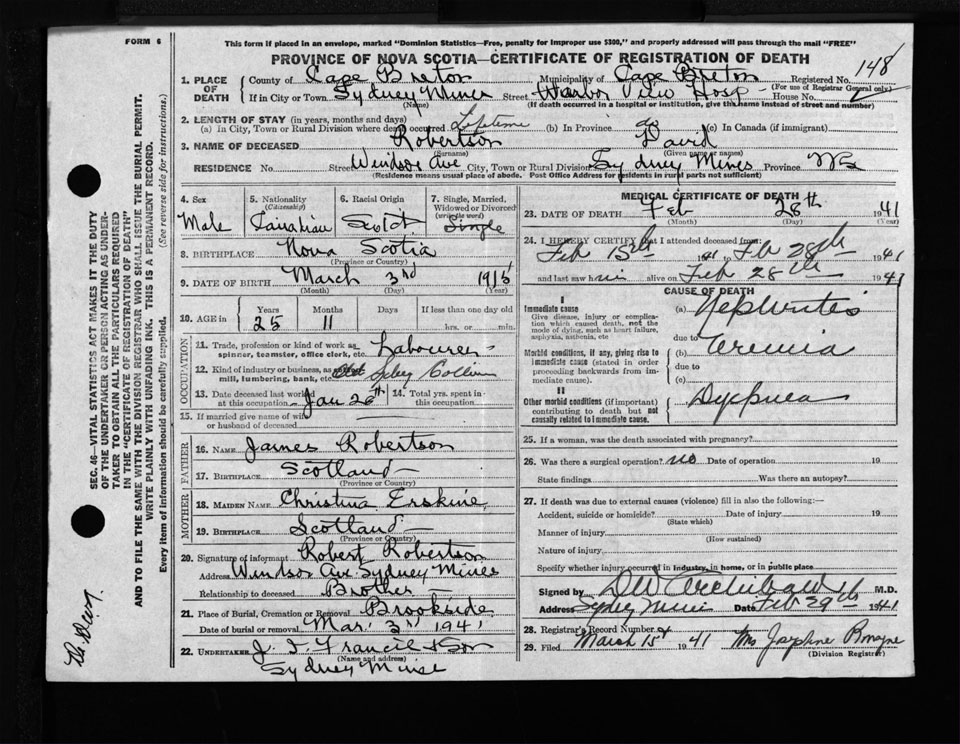 FORM 6
This form if placed in an envelope, marked "Dominion Statistics—Free, penalty for improper use $300," and properly addressed will pass through the mail "FREE"
PROVINCE OF NOVA SCOTIA—CERTIFICATE OF REGISTRATION OF DEATH
148
1. PLACE OF DEATH County of Cape Breton Municipality of Cape Breton Registered No.
(For use of Registrar General only.)
If in City or Town Sydney Mines Street Harbor View Hosp House No.
(Name) (If death occurred in a hospital or institution, give the name instead of street and number)
2. LENGTH OF STAY (in years, months and days)
(a) In City, Town or Rural Division where death occurred Lifetime (b) In Province do (c) In Canada (if immigrant)
3. NAME OF DECEASED Robertson David
(Surname) (Given name or names)
RESIDENCE No. Street Windsor Ave City, Town or Rural Division Sydney Mines Province NS
(Residence means usual place of abode. Post Office Address for residents in rural parts not sufficient)
4. Sex Male
5. Nationality (Citizenship) Canadian
6. Racial Origin Scotch
7. Single, Married, Widowed or Divorced (write the word) Single
8. BIRTHPLACE Nova Scotia
(Province or Country)
9. DATE OF BIRTH March 3rd 1915
(Month) (Day) (Year)
10. AGE in Years Months Days If less than one day old
25 11 hrs. or min.
OCCUPATION
11. Trade, profession or kind of work as spinner, teamster, office clerk, etc. Labourer
12. Kind of industry or business, as mill, lumbering, bank, etc.
13. Date deceased last worked at this occupation Jan 26th
14. Total yrs. spent in this occupation
15. If married give name of wife or husband of deceased
FATHER
16. NAME James Robertson
17. BIRTHPLACE Scotland
(Province or Country)
MOTHER
18. MAIDEN NAME Christina Erskine
19. BIRTHPLACE Scotland
(Province or Country)
20. Signature of informant Robert Robertson
Address Windsor Ave Sydney Mines
Relationship to deceased Brother
21. Place of Burial, Cremation or Removal Brookside
Date of burial or removal Mar. 3rd 1941
22. UNDERTAKER J. T. Francis & Son
(Name and address)
Sydney Mines
MEDICAL CERTIFICATE OF DEATH
23. DATE OF DEATH Feb 28th 1941
(Month) (Day) (Year)
24. I HEREBY CERTIFY that I attended deceased from:
Feb 15th 1941 to Feb 28th 1941
and last saw him alive on Feb 28th 1941
CAUSE OF DEATH
I
Immediate cause
Give disease, injury or complication which caused death, not the mode of dying, such as heart failure, asphyxia, asthenia, etc
(a) Nephritis
due to
Morbid conditions, if any, giving rise to immediate cause (stated in order proceeding backwards from immediate cause).
(b) Uremia
due to
(c)
II
Other morbid conditions (if important) contributing to death but not causally related to immediate cause.
Dyspnea
25. If a woman, was the death associated with pregnancy?
26. Was there a surgical operation? no Date of operation 19
State findings Was there an autopsy?
27. If death was due to external causes (violence) fill in also the following:—
Accident, suicide or homicide? Date of injury 19
(State which)
Manner of injury
(How sustained)
Nature of injury
Specify whether injury occurred in industry, in home, or in public place
Signed by D W Archibald M.D.
Address Sydney Mines Date Feb 29th 1941
28. Registrar's Record Number
29. Filed March 1941 Mrs Josephine
(Division Registrar)
SEC. 46—VITAL STATISTICS ACT MAKES IT THE DUTY
OF THE UNDERTAKER OR PERSON ACTING AS UNDERTAKER TO OBTAIN ALL THE PARTICULARS REQUIRED
IN THE "CERTIFICATE OF REGISTRATION OF DEATH"
AND TO FILE THE SAME WITH THE DIVISION REGISTRAR WHO SHALL ISSUE THE BURIAL PERMIT.
WRITE PLAINLY WITH UNFADING INK. THIS IS A PERMANENT RECORD.
Every item of information should be carefully supplied. (See reverse side for instructions.)